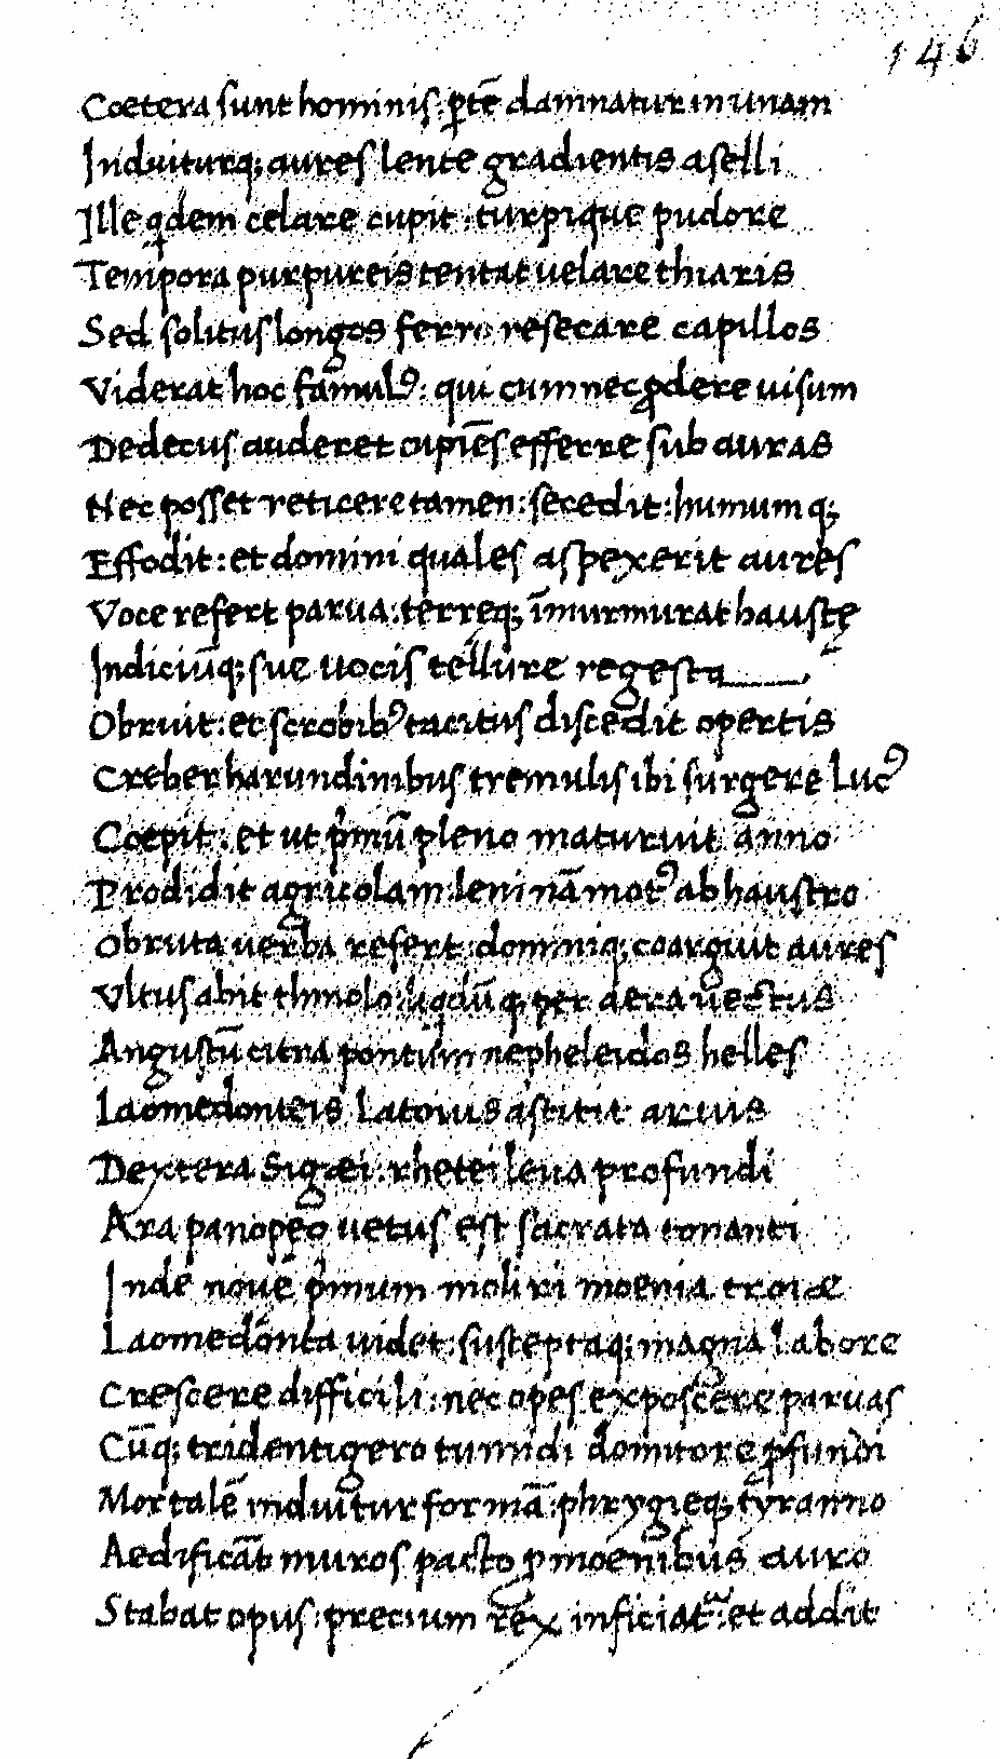 146
Cœtera sunt hominis: ꝑtē damnatur in unam
Induiturq; aures lente gradientis aselli
Ille qdem celare cupit: turpique pudore
Tempora purpureis tentat uelare thiaris
Sed solitus longos ferro resecare capillos
Viderat hoc famulꝰ: qui cum nec ꝓdere uisum
Dedecus auderet cupiēs efferre sub auras
Nec posset reticere tamen: secedit: humumq;
Effodit: et domini quales aspexerit aures
Voce refert parua: terreq; īmurmurat haustę
Indiciūq; sue uocis tellure regesta
Obruit: et scrobibꝰ tacitus discedit opertis
Creber harundinibus tremulis ibi surgere lucꝰ
Coepit: et ut pͥmū pleno maturuit anno
Prodidit agricolam: leni nā motꝰ ab haustro
Obruta uerba refert: dominiq; coarguit aures
Vltus abit thmolo: liqdūq; per aera uectus
Angustū citra pontum nepheleidos helles
Laomedonteis Latoius astitit aruis
Dextera Sigæi: rhetei leua profundi
Ara panopęo uetus est sacrata tonanti
Inde nouē pͥmum moliri moenia troiæ
Laomedonta uidet: susceptaq; magna labore
Crescere difficili: nec opes exposcere paruas
Cūq; tridentigero tumidi domitore ꝓfundi
Mortalē induitur formā: phrygieq; tyranno
Aedificāt muros pacto ꝓ moenibus auro
Stabat opus: precium rex inficiatᷓ: et addit